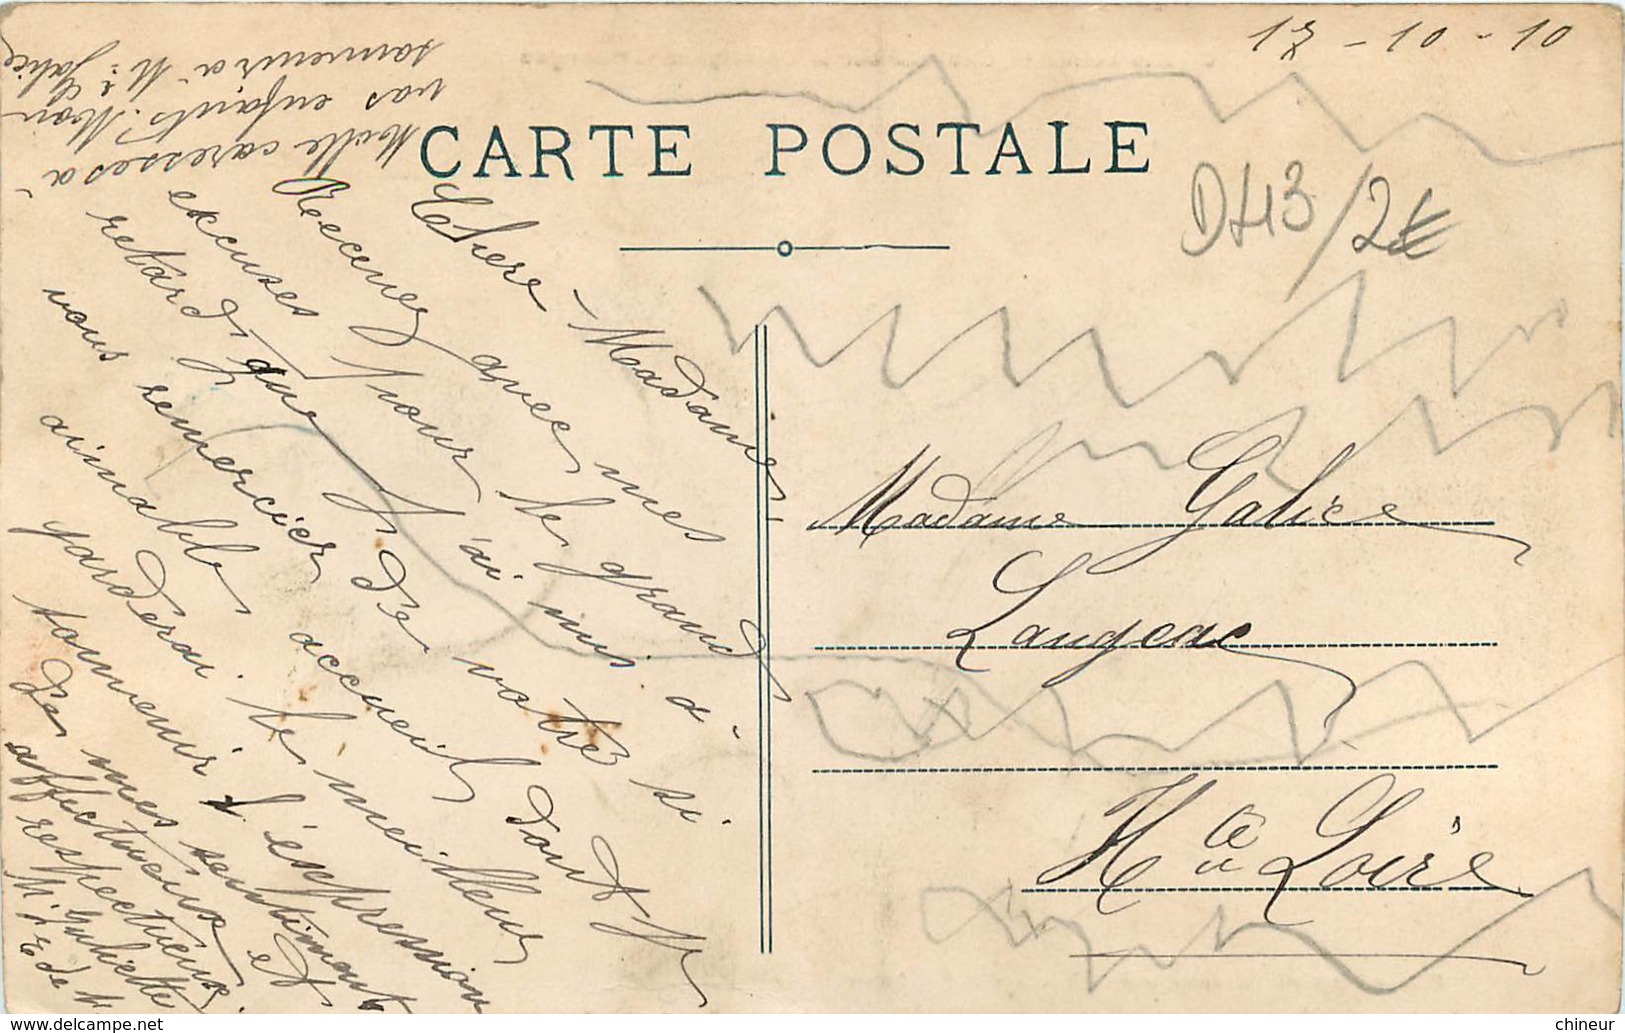 17 - 10 - 10
CARTE POSTALE
DH13/2€
Chère Madame
Recevez avec mes
excuses pour le grand
retard que j'ai mis à
vous remercier de votre si
aimable accueil dont je
garderai le meilleur
souvenir l'expression
de mes sentiments et
affectueux
respectueux
Juliette
Mille caresses à
vos enfants. Mon
souvenir à Mr Galice
Madame Galice
Langeac
Hte Loire
chineur